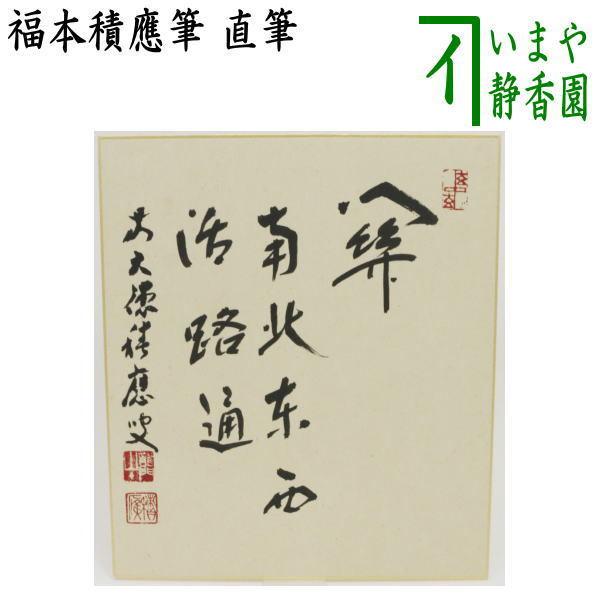 福本積應筆 直筆
いまや
静香園
関
南北東西
活路通
前大徳積應叟